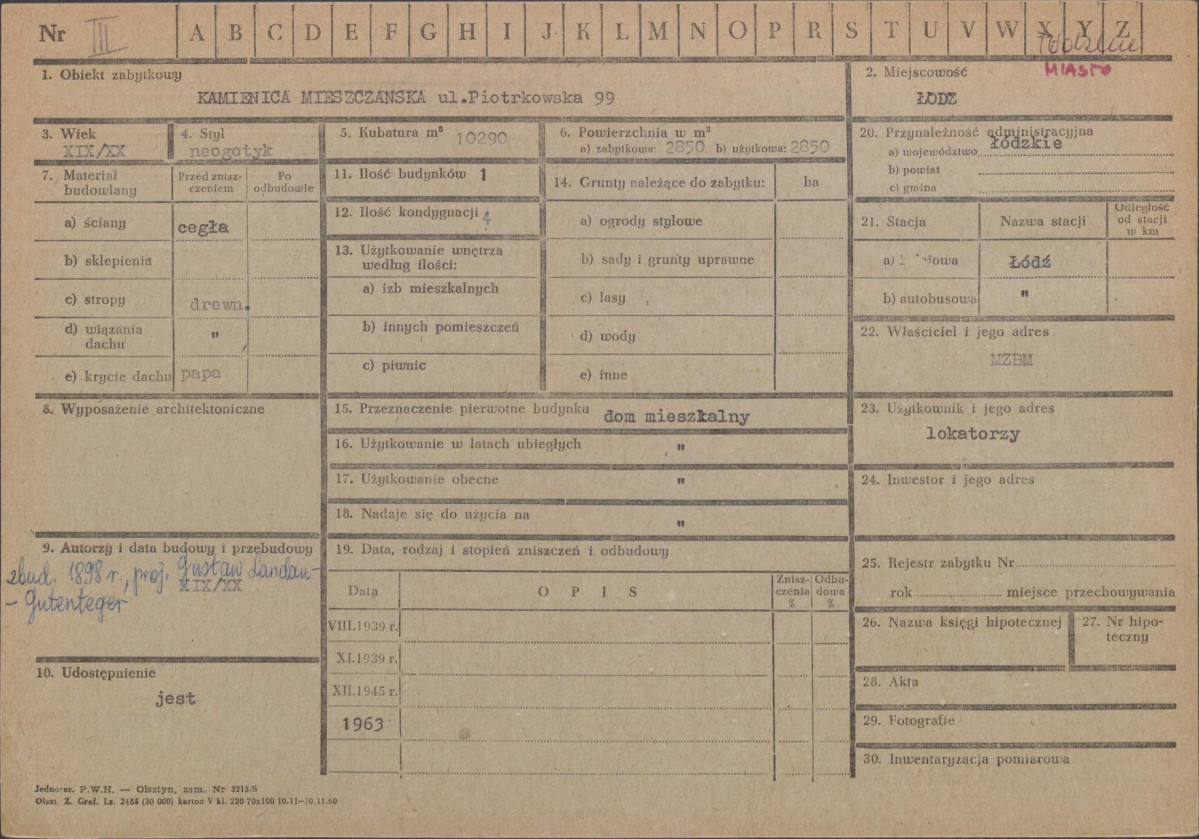 Nr III A B C D E F G H I J K L M N O P R S T U V W X Y Z
łódzkie
MIASTO
1. Obiekt zabytkowy
KAMIENICA MIESZCZAŃSKA ul.Piotrkowska 99
2. Miejscowość
ŁÓDŹ
3. Wiek
XIX/XX
4. Styl
neogotyk
5. Kubatura m³ 10290
6. Powierzchnia w m²
a) zabytkowa: 2850 b) użytkowa: 2850
7. Materiał budowlany
Przed znisz-
czeniem
Po
odbudowie
a) ściany cegła
b) sklepienia
c) stropy drewn.
d) wiązania
dachu "
e) krycie dachu papa
8. Wyposażenie architektoniczne
9. Autorzy i data budowy i przebudowy
zbud. 1898 r., proj. Gustaw Landau-
XIX/XX
- Gutenteger
10. Udostępnienie
jest
11. Ilość budynków 1
12. Ilość kondygnacji 4
13. Użytkowanie wnętrza
według ilości:
a) izb mieszkalnych
b) innych pomieszczeń
c) piwnic
14. Grunty należące do zabytku: ha
a) ogrody stylowe
b) sady i grunty uprawne
c) lasy
d) wody
e) inne
15. Przeznaczenie pierwotne budynku dom mieszkalny
16. Użytkowanie w latach ubiegłych "
17. Użytkowanie obecne "
18. Nadaje się do użycia na "
19. Data, rodzaj i stopień zniszczeń i odbudowy
Data OPIS
Znisz-
czenia
%
Odbu-
dowa
%
VIII.1939 r.
XI.1939 r.
XII.1945 r.
1963
20. Przynależność administracyjna
a) województwo łódzkie
b) powiat
c) gmina
21. Stacja Nazwa stacji
Odległość
od stacji
w km
a) Łódź
b) autobusowa "
22. Właściciel i jego adres
MZBM
23. Użytkownik i jego adres
lokatorzy
24. Inwestor i jego adres
25. Rejestr zabytku Nr
rok miejsce przechowywania
26. Nazwa księgi hipotecznej
27. Nr hipo-
teczny
28. Akta
29. Fotografie
30. Inwentaryzacja pomiarowa
Jednoraz. P.W.H. — Olsztyn, zam. Nr 3215/S
Olszt. Z. Graf. Lz. 2455 (30 000) karton V kl. 220 70x100 10.11—30.11.60